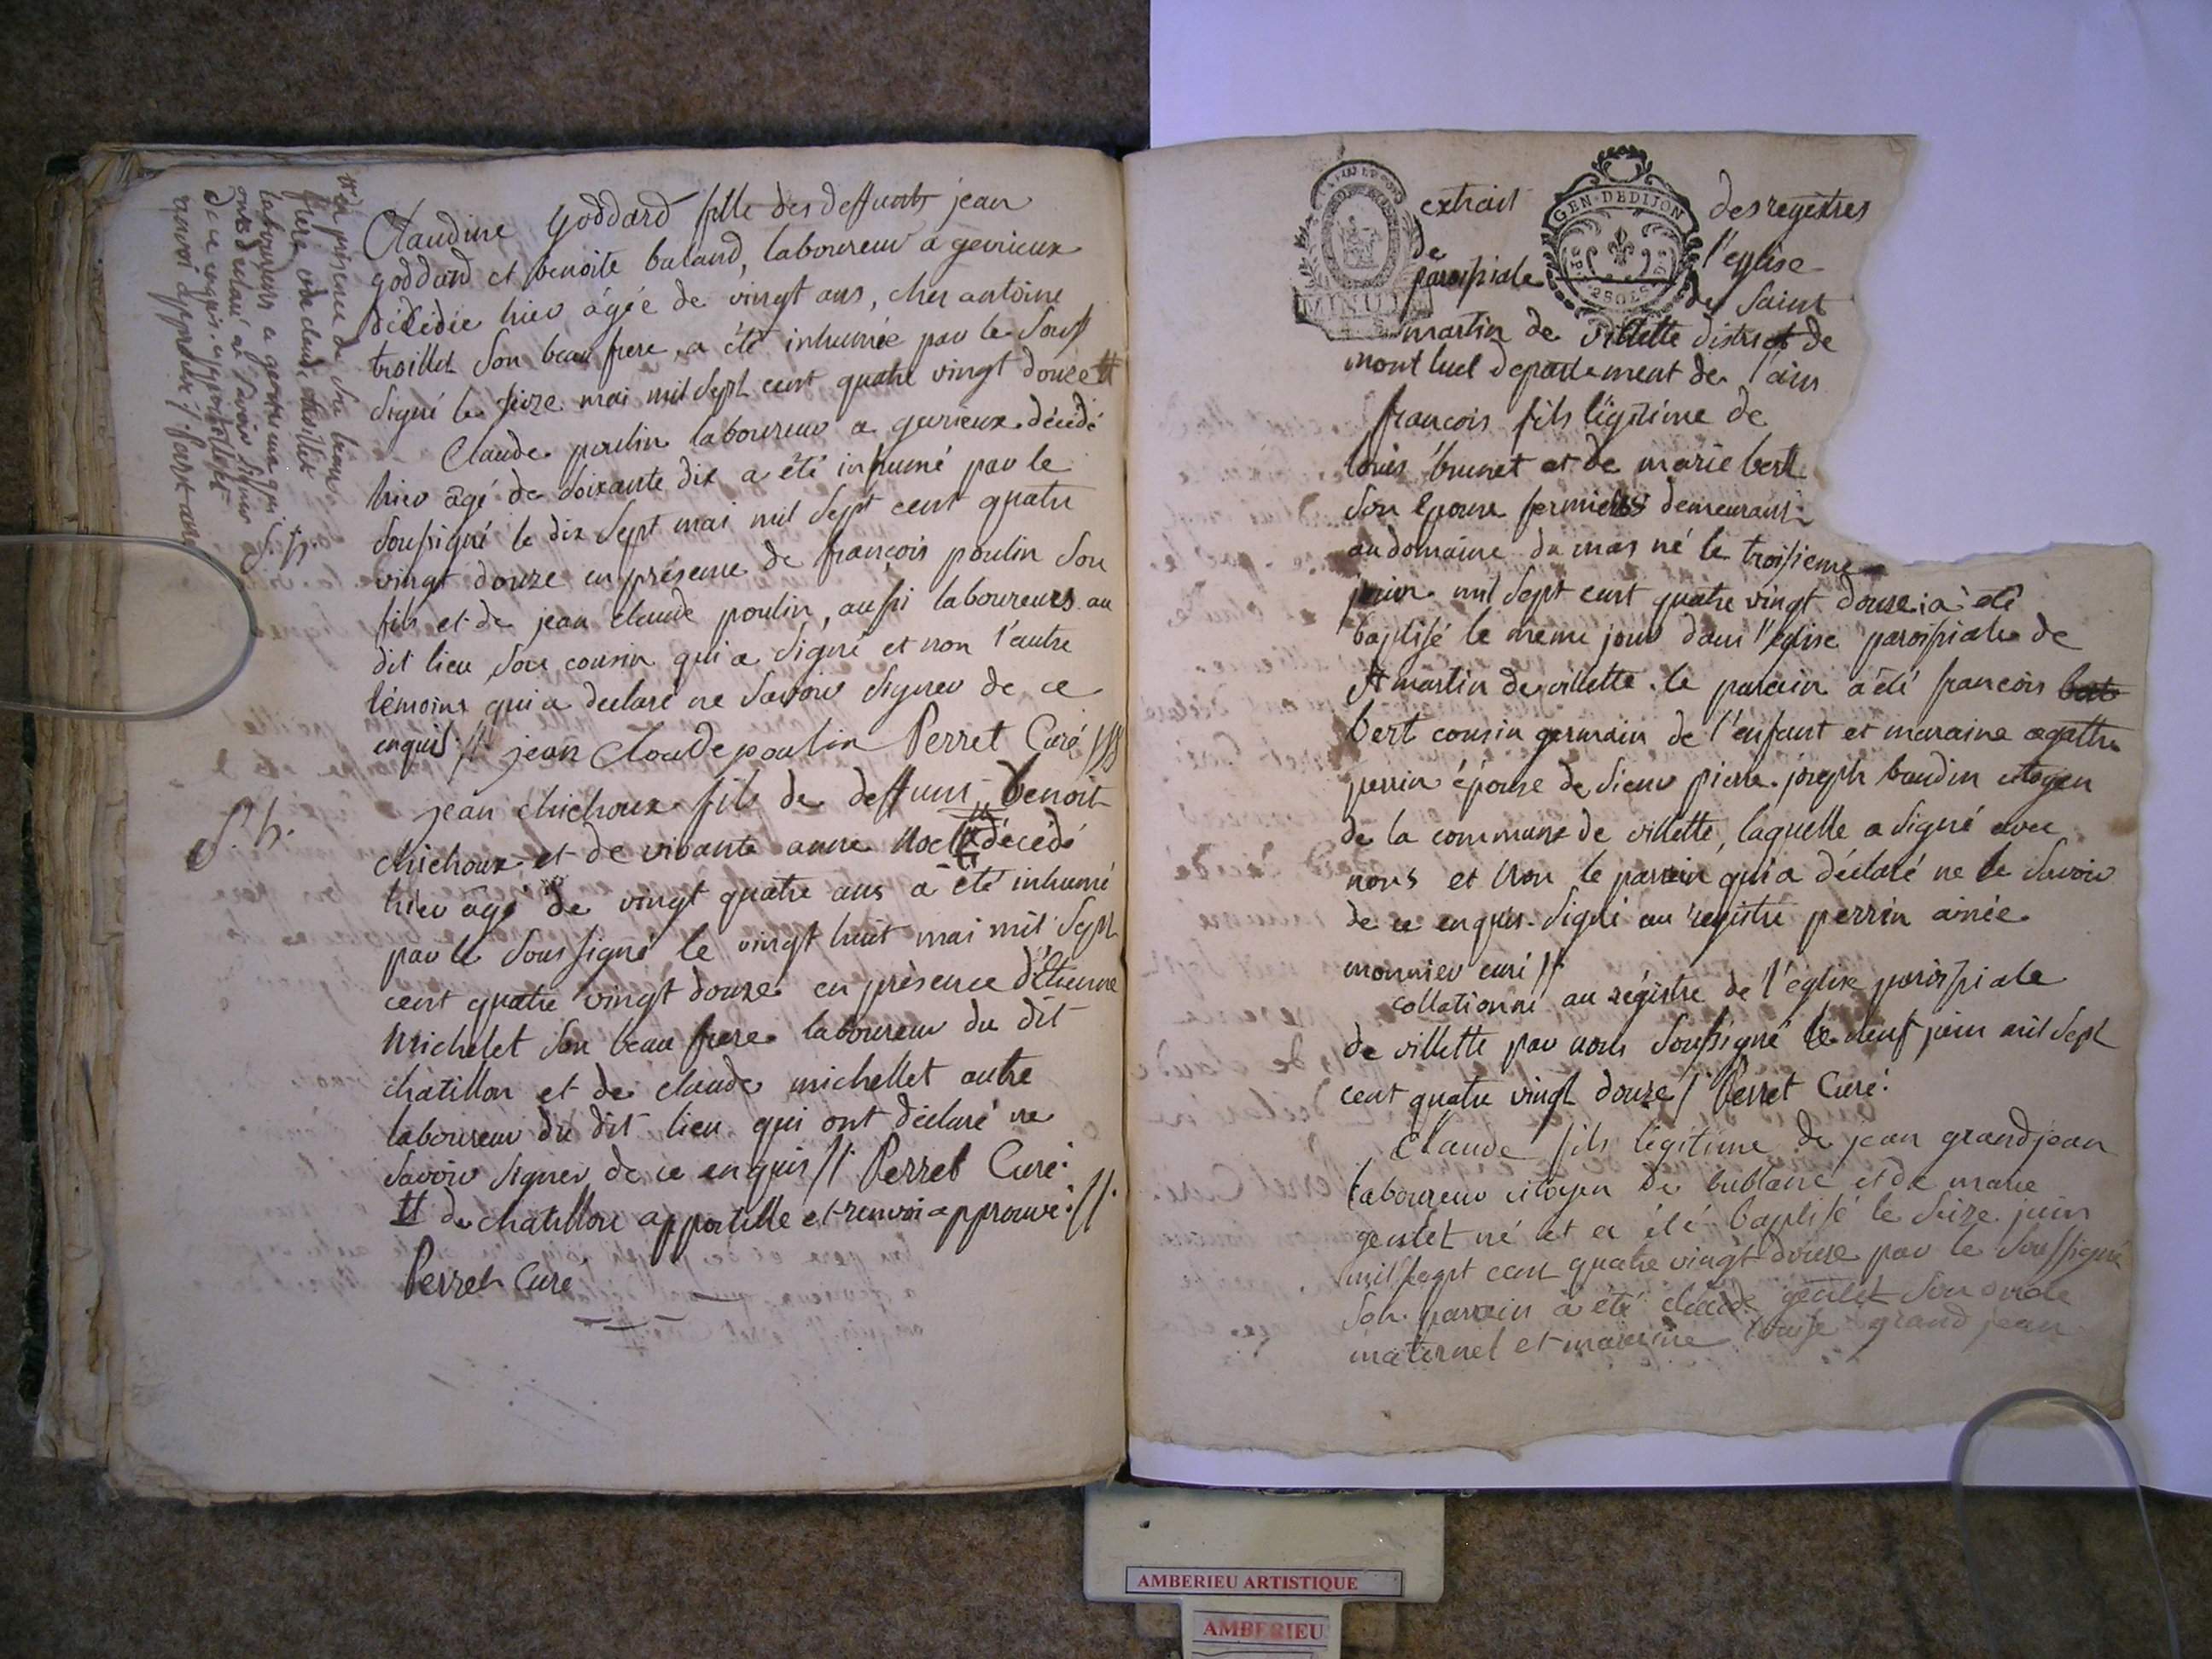 Claudine Goddard fille des deffunts jean
goddard et benoite baland, laboureur a gevrieux
décédée hier âgée de vingt ans, chez antoine
troillet Son beau frere, a été inhumée par le Sous
signé le seize mai mil Sept cent quatre vingt douze #
Claude poulin laboureur a gevrieux décédé
hier âgé de soixante dix a été inhumé par le
Soussigné le dix Sept mai mil Sept cent quatre
vingt douze en présence de françois poulin Son
fils et de jean claude poulin, aussi laboureurs au
dit lieu Son cousin qui a Signé et non l'autre
témoins qui a declaré ne Savoir Signer de ce
enquis // jean Cloude poulin Perret Curé
S. h.
jean chichoux fils de deffunt benoit
chichoux et de vivante anne décédé
hier âgé de vingt quatre ans a été inhumé
par le Sous signé le vingt huit mai mil Sept
cent quatre vingt douze en présence d'Etienne
Michelet Son beau frere laboureur du dit
chatillon et de claude michellet autre
laboureur du dit lieu qui ont déclaré ne
Savoir Signer de ce enquis // Perret Curé.
# de chatillon appostille et renvoi approuvé://.
Perret Cure
# en présence de Son beau
frere et de claude troillet
laboureurs a gevrieux qui
ont déclaré ne Savoir Signer
de ce enquis. appostille
renvoi approuvé
S. h.
extrait des registres
GEN·DEDIJON
MINUTE
de l'eglise
paroissiale de Saint
martin de villette district de
mont luel departement de l'ain
françois fils légitime de
louis brunet et de marie bert
Son epouse fermiers demeurant
au domaine du mas né le troisieme
juin mil Sept cent quatre vingt douze, a été
baptisé le même jour dans l'église paroissiale de
St martin de villette. le parain a été francois
bert cousin germain de l'enfant et maraine agathe
perrin épouse de Sieur pierre joseph baudin citoyen
de la commune de villette, laquelle a Signé avec
nous et non le parrain qui a déclaré ne le Savoir
de ce enquis. Signé au registre perrin ainée
monnier curé //
collationné au régistre de l'église paroissiale
de villette par nous Soussigné le neuf juin mil Sept
cent quatre vingt douze / Perret Curé.
Claude fils légitime de jean grandjean
laboureur citoyen de bublane et de marie
gentet né et a été baptisé le Seize juin
mil sept cent quatre vingt douze par le Soussigné
Son parrain a été claude gentet Son oncle
maternel et maraine louise grand jean
AMBERIEU ARTISTIQUE
AMBERIEU